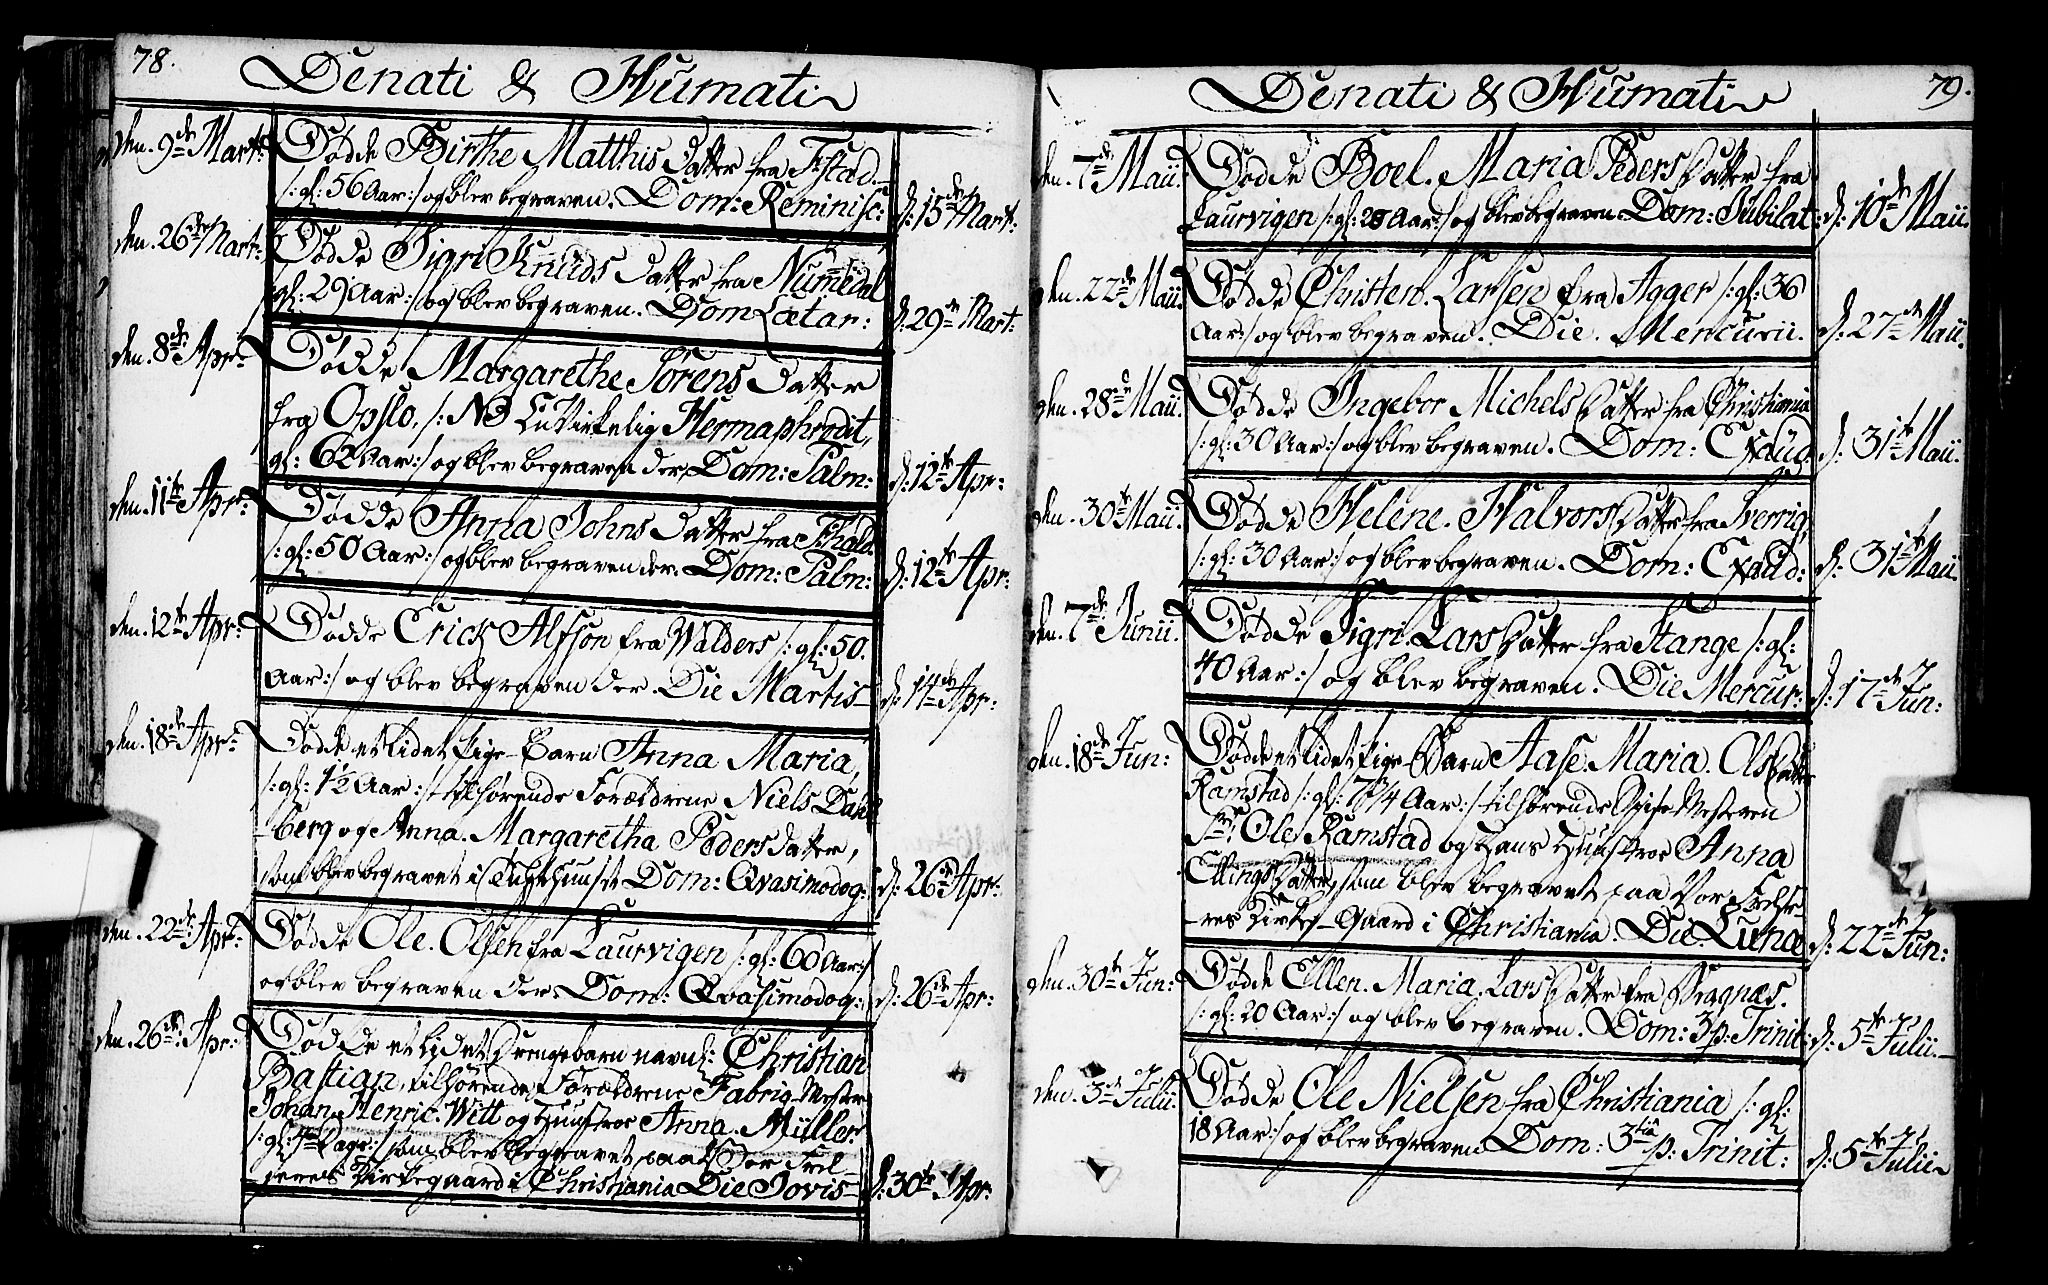 78.
Denati & Humati
den. 9de Mart: Døde Birthe Matthis Datter fra F:stad.
/: gl: 56 Aar :/ og blev begraven. Dom: Reminisc: d: 15de Mart:
den. 26de Mart: Døde Sigri Knuds Datter fra Numedal
/: gl: 29 Aar :/ og blev begraven. Dom Lætar: d: 29de Mart:
den. 8de Apr: Døde Margarethe Sörens Datter
fra Opslo, /: NB En Virkelig Hermaphrodit,
gl: 62 Aar :/ og blev begraven der Dom: Palm: d: 12te Apr:
den. 11te Apr: Døde Anna Johns Datter fra F:hald.
/: gl: 50 Aar :/ og blev begraven der. Dom: Palm: d: 12te Apr:
den. 12te Apr: Døde Erick Alfson fra Walders /: gl: 50.
Aar :/ og blev begraven der Die Martis d: 14de Apr:
den. 18de Apr: Døde et lidet Pige-Barn Anna Maria,
/: gl: 1½ Aar :/ tilhørende Forældrene Niels Dahl
berg og Anna. Margaretha Peders Datter,
som blev begravet i Tugthuuset Dom: Qvasimodog: d: 26de Apr:
den. 22de Apr: Døde Ole. Olsen fra Laurvigen /: gl: 60 Aar :/
og blev begraven der Dom: Qvasimodog: d: 26de Apr:
den. 26de Apr: Døde et lidet Drengebarn navnl: Christian
Bastian, tilhørende Forældrene Fabriq-Mester
Johan Henric. Witt og Huustroe Anna. Müller.
/: gl: Dage :/ som blev begravet paa Vor Frel-
seres Kirkegaard i Christiania Die Jovis d: 30te Apr:
79.
Denati & Humati
den. 7de Maii. Døde Boel. Maria Peders Datter fra
Laurvigen /: gl: 20 Aar :/ og blev begraven. Dom: Jubilat: d: 10de Maii.
den. 22de Maii. Døde Christen. Larsen fra Agger /: gl: 36
Aar :/ og blev begraven. Die. Mercurii. d: 27de Maii.
den. 28de Maii. Døde Ingebor Michels Datter fra Christiania
/: gl: 30 Aar :/ og blev begraven. Dom: Exaud: d: 31te Maii.
den. 30te Maii. Døde Helene. Halvors Datter fra Sverrig,
/: gl: 30 Aar :/ og blev begraven. Dom: Exaud: d: 31te Maii
den. 7de Junii. Døde Sigri. Lars Datter fra Stange /: gl:
40 Aar :/ og blev begraven. Die Mercur: d: 17de Jun:
den. 18de Jun: Døde et lidet Pige-Barn Aase Maria. Ols Datter
Ramstad /: gl: 7/4 Aar :/ tilhørende Spise Mesteren
Sr: Ole Ramstad og Hans Huustroe Anna
Ellings Datter, som blev begravet paa Vor Frelse-
-res Kirke-Gaard i Christiania. Die Lunæ d: 22de Jun:
den. 30te Jun: Døde Ellen. Maria. Lars Datter fra Bragnæs.
/: gl: 20 Aar :/ og blev begraven. Dom: 3 p: Trinit: d: 5te Julii.
den. 3de Julii Døde Ole Nielsen fra Christiania /: gl:
18 Aar :/ og blev begraven Dom: 3tia p: Trinit: d: 5te Julii